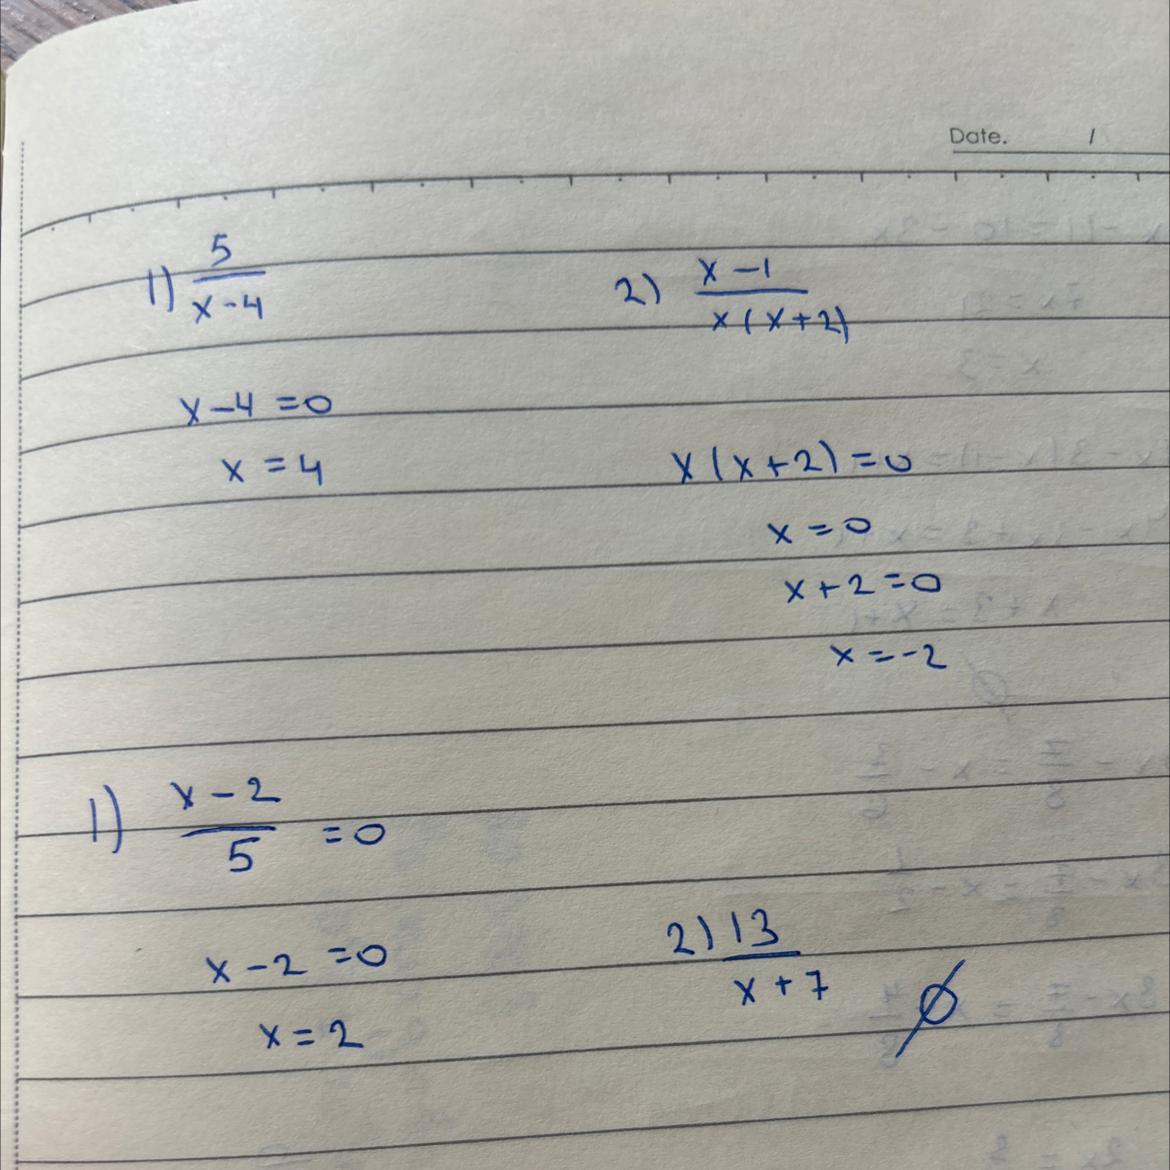 Date. /
1) 5/(x-4)
x-4=0
x=4
2) (x-1)/(x(x+2))
x(x+2)=0
x=0
x+2=0
x=-2
1) (x-2)/5 =0
x-2=0
x=2
2) 13/(x+7) ∅